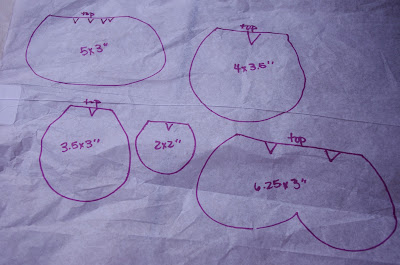 top
5x3"
top
4x3.5"
top
3.5x3"
2x2"
top
6.25x3"